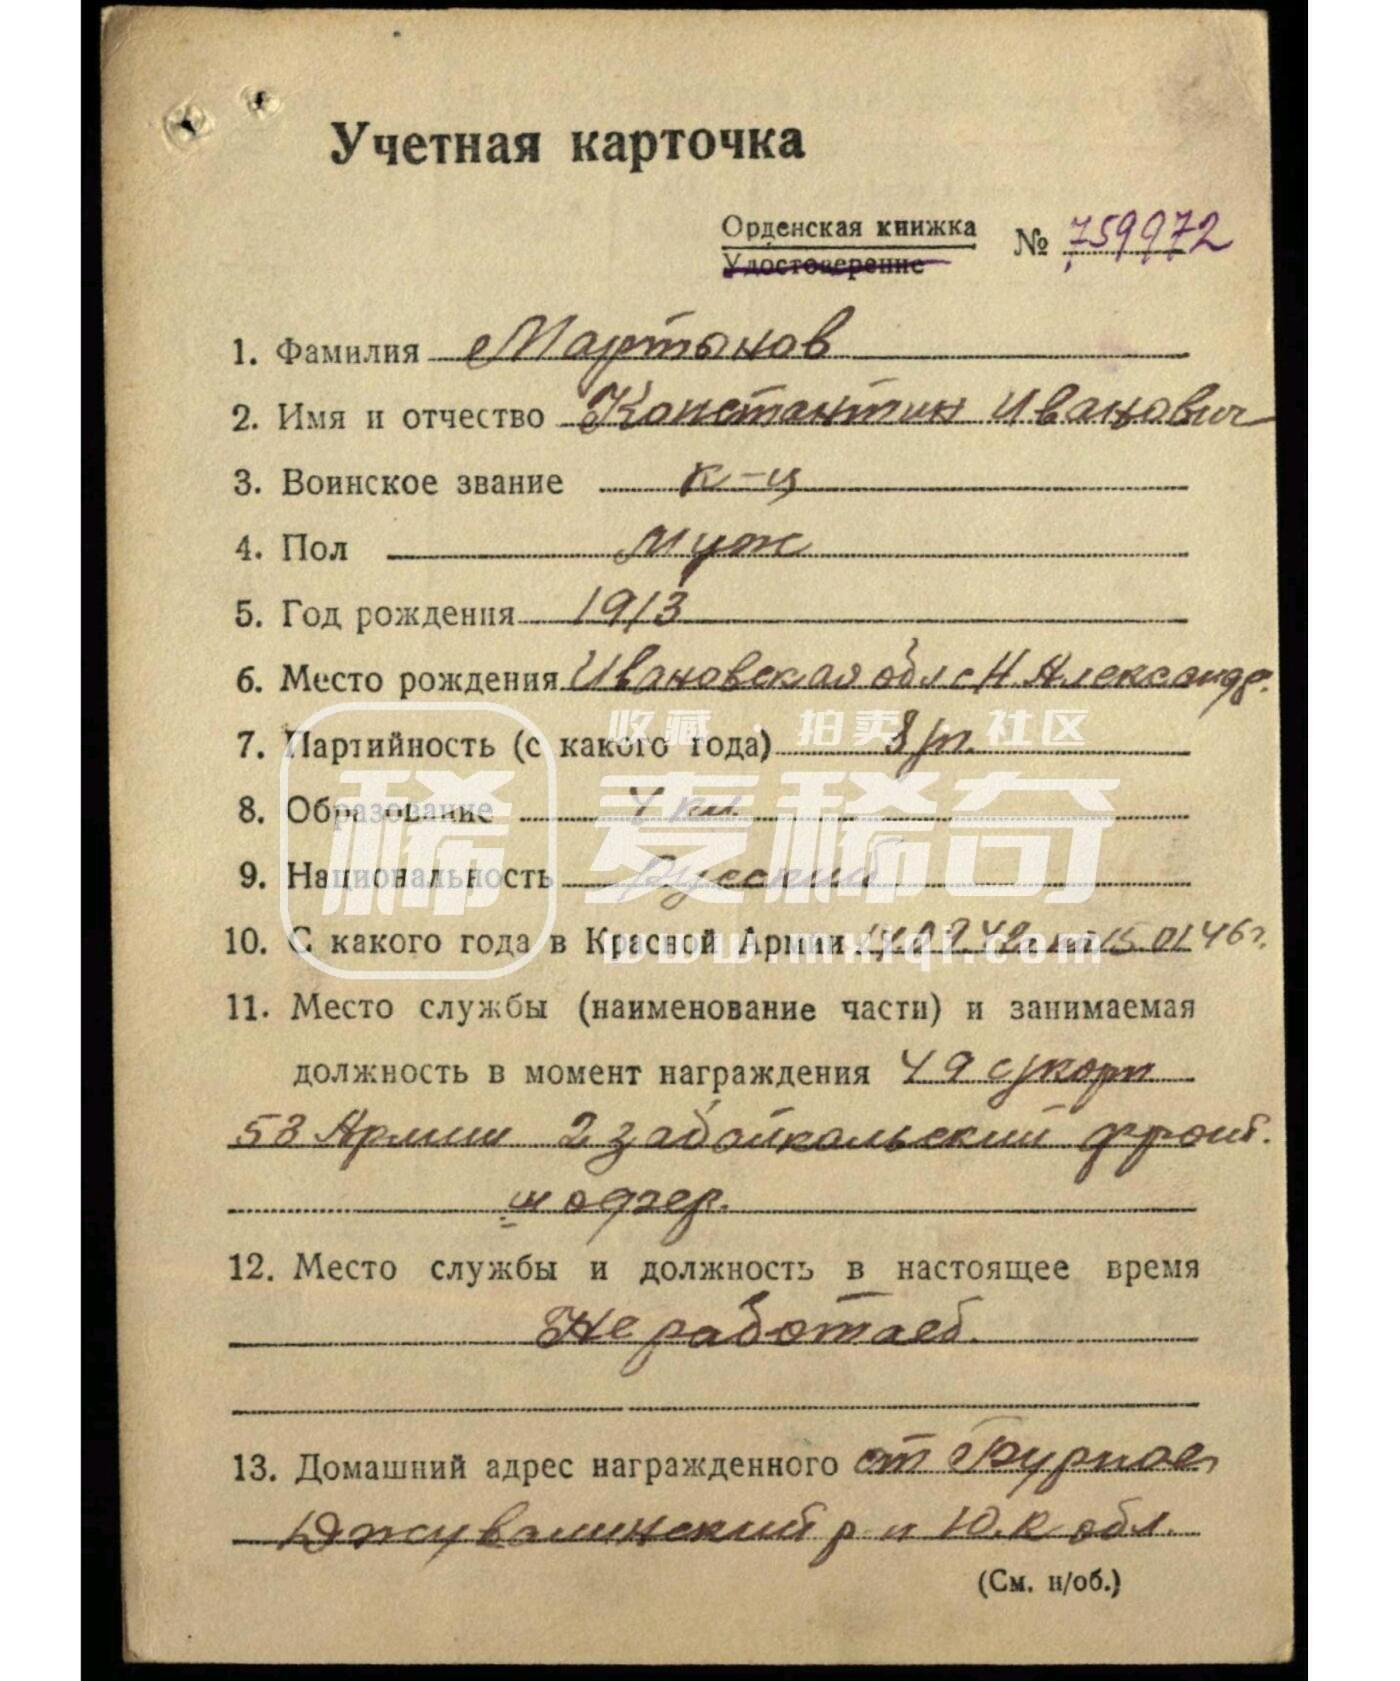 Учетная карточка
Орденская книжка
Удостоверение
№ 759972
1. Фамилия Мартынов
2. Имя и отчество Константин Иванович
3. Воинское звание к-ц
4. Пол муж
5. Год рождения 1913
6. Место рождения Ивановская обл с Н Александр.
收藏 · 拍卖 · 社区
7. Партийность (с какого года) б/п.
稀 麦稀奇
8. Образование 4 кл.
9. Национальность Русский
10. С какого года в Красной Армии 15 01 46 г.
www.mxiqi.com
11. Место службы (наименование части) и занимаемая
должность в момент награждения 49 с/корп
53 Армии 2 забайкальский фронт.
12. Место службы и должность в настоящее время
Не работает.
13. Домашний адрес награжденного ст Бурное,
Джувалинский р н Ю.К обл.
(См. н/об.)